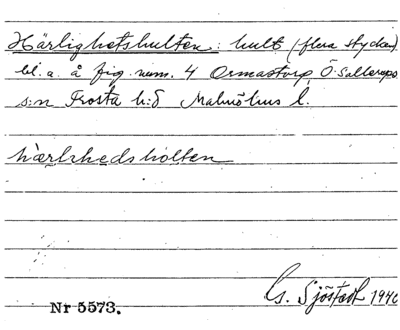 Härlighetshulten : hult (flera stycken)
bl. a. å fig. num. 4 Ormastorp, Ö. Sallerups
s:n Frosta h:d Malmöhus l.
hærlrhedsholten
G. Sjöstedt 1940
Nr 5573.